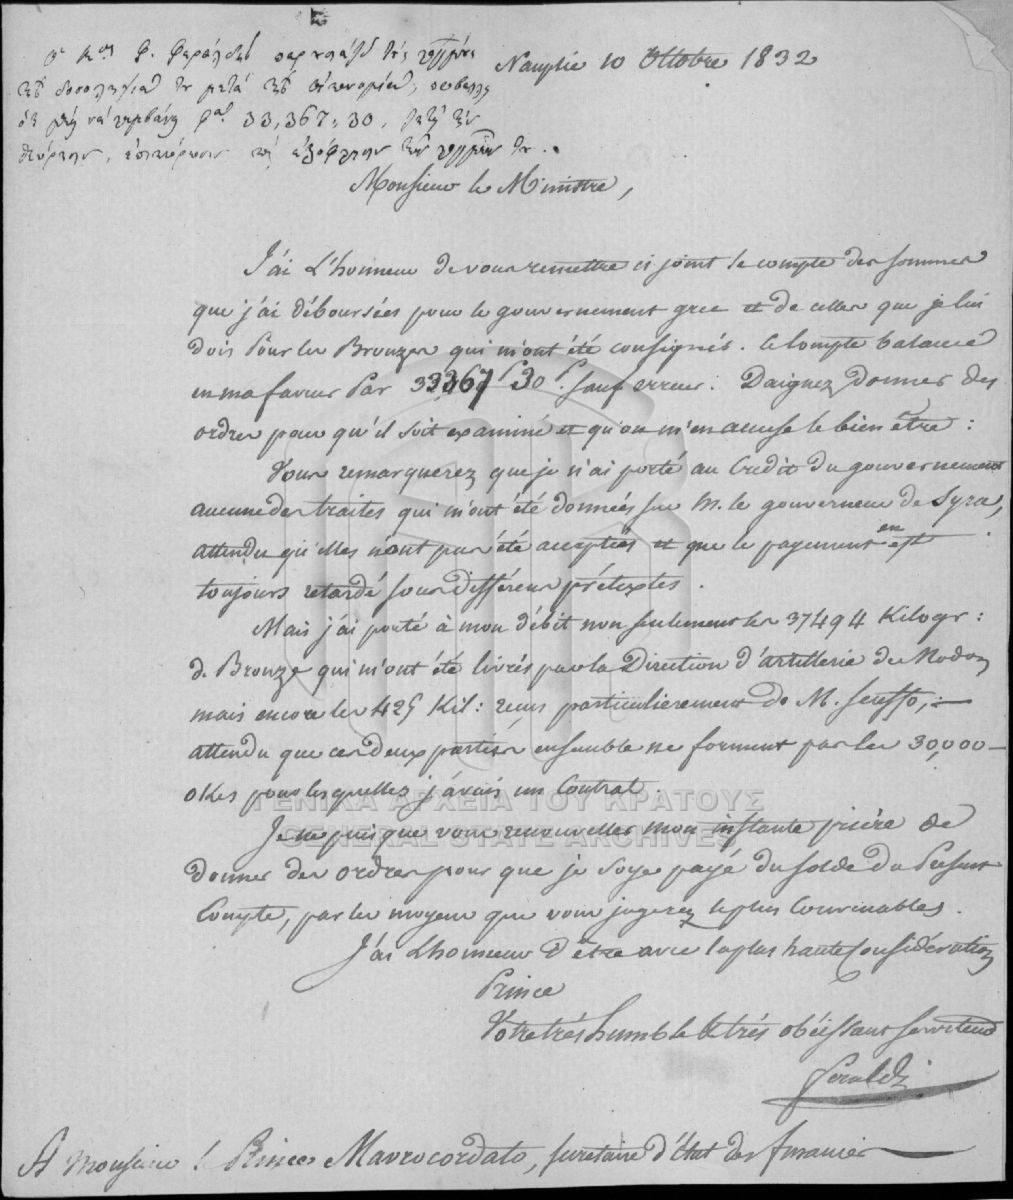 Nauplie 10 Octobre 1832
33,367,,30,
Monsieur le Ministre,
J'ai L'honneur de vous remettre ci joint le compte des sommes
que j'ai déboursées pour le gouvernement grec et de celles que je lui
dois Pour les Bronzes qui m'ont été consignés. le Compte balancé
en ma faveur Par 33367 P 30 P. sauf erreur. Daignez Donner des
ordres pour qu'il soit examiné et qu'on m'en accuse le bien être:
Vous remarquerez que je n'ai porté au Credit du gouvernement
aucune des traites qui m'ont été données sur M. le gouverneur de Syra,
attendu qu'elles n'ont pas été acceptées et que le payement en est
toujours retardé sous différens prétextes.
Mais j'ai porté à mon débit non seulement les 37494 Kilogr:
de Bronze qui m'ont été livrés par la Direction d'artillerie de Modon
mais encore les 425 Kil: reçus particulierement de M.
attendu que ces deux parties ensemble ne forment pas les 30,000
okes pour lesquelles j'avais un Contrat.
Je ne puis que vous renouveller mon instante prière de
donner des ordres pour que je soye payé du solde du Présent
Compte, par les moyens que vous jugerez le plus Convenables.
J'ai L'honneur d'être avec la plus haute Considération
Prince
Votre très humble et très obéissant serviteur
Feraldi
A Monsieur le Prince Mavrocordato, secretaire d'État des finances
ΓΕΝΙΚΑ ΑΡΧΕΙΑ ΤΟΥ ΚΡΑΤΟΥΣ
GENERAL STATE ARCHIVES